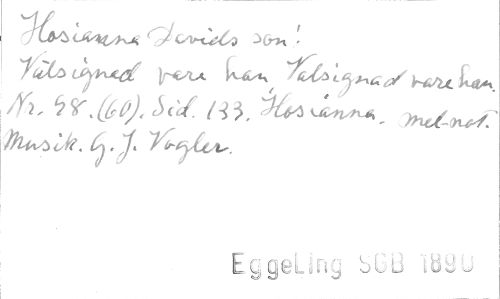 Hosianna Davids son!
Välsignad vare han, Välsignad vare han.
Nr. 98. (60). Sid. 133. Hosianna. mel-not.
Musik. G. J. Vogler.
EggeLing SGB 1890